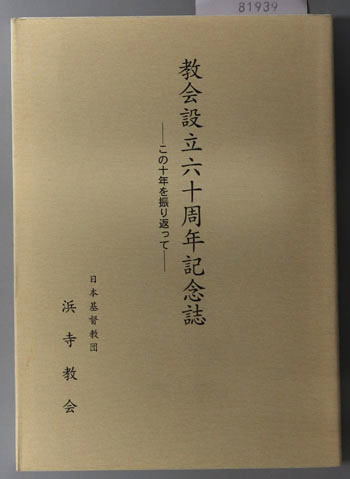 81939
教会設立六十周年記念誌
――この十年を振り返って――
日本基督教団
浜寺教会